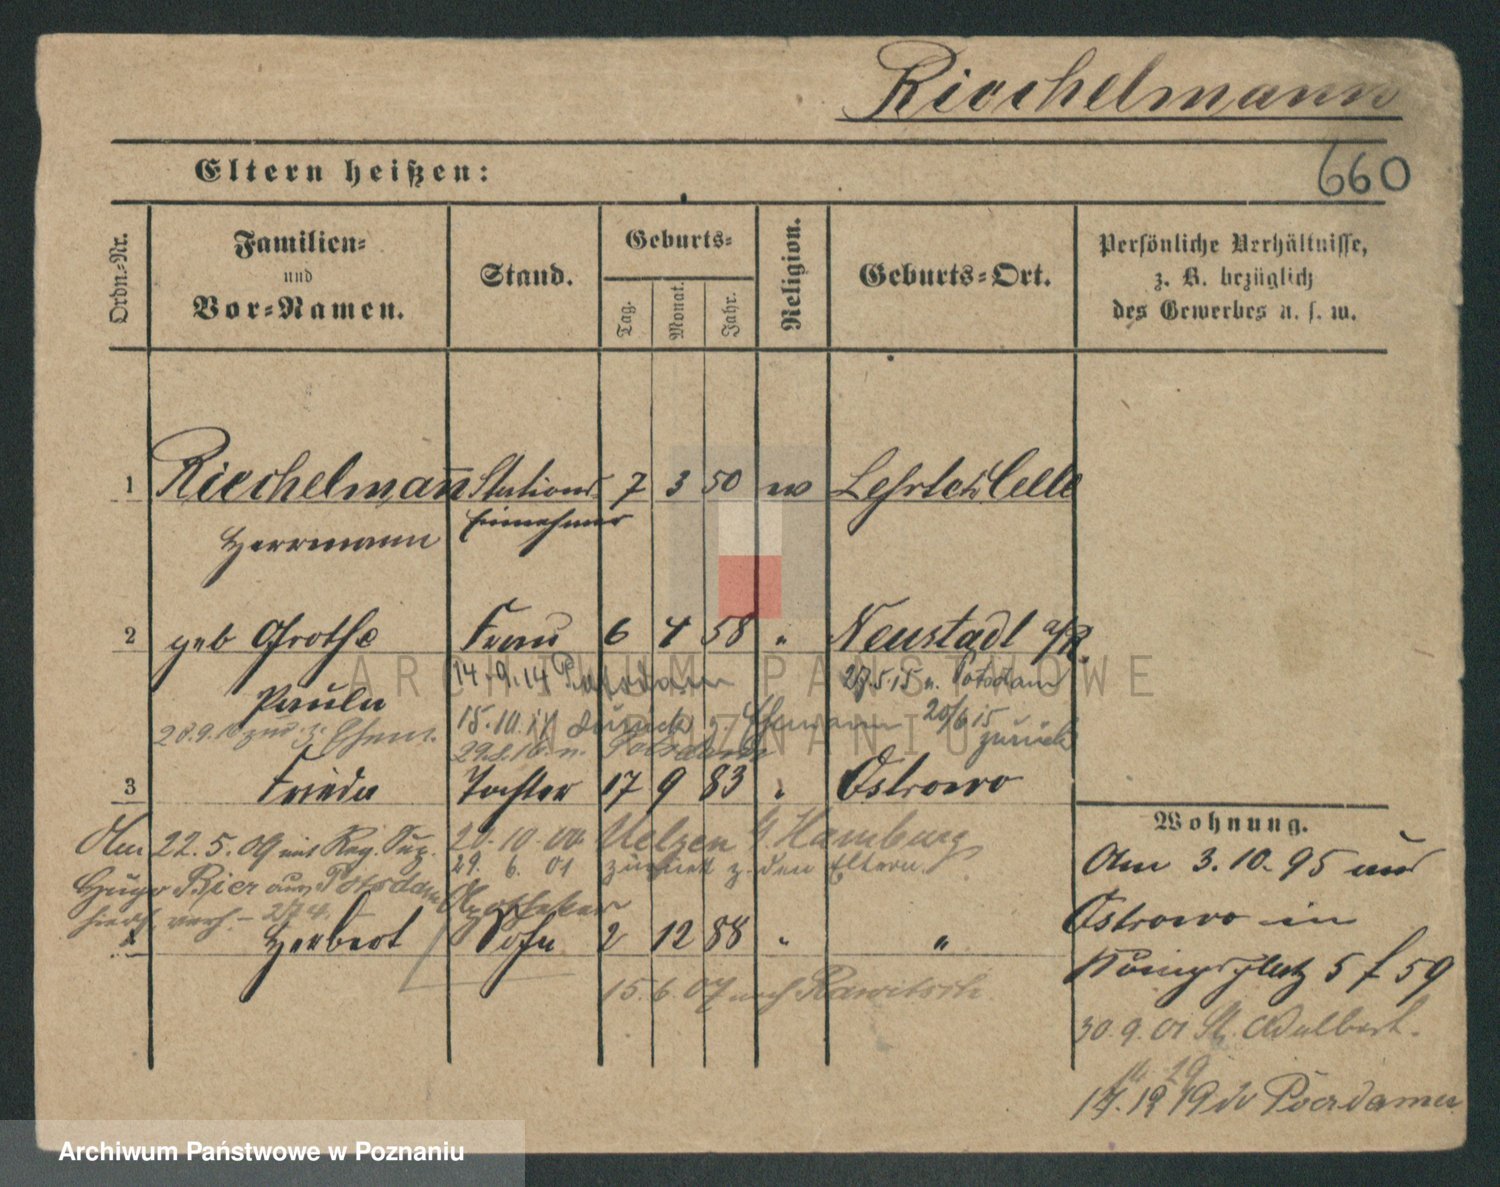 Riechelmann
660
Eltern heißen:
Ordn.-Nr.
Familien-
und
Vor-Namen.
Stand.
Geburts-
Tag.
Monat.
Jahr.
Religion.
Geburts-Ort.
Persönliche Verhältnisse,
z. B. bezüglich
des Gewerbes u. s. w.
1 Riechelmann Stations 7 3 50 ev Lehrte Celle
Herrmann Einnehmer
2 geb Grothe Frau 6 4 58 " Neustadt a/R.
14.9.14 Potsdam 27.5.15 n. Potsdam
Paula
15.10.14 zurück z. Ehemann 20/6 15
zurück
28.9. z. Ehem.
29. 16. n. Potsdam
3 Frieda Tochter 17 9 83 " Ostrowo
Am 22.5.09 mit Reg. Sup. 20.10.00 Uelzen Hamburg
29. 6. 01 zurück z. den Eltern.
Hugo Rier aus Potsdam
hier verh. 274. Apotheker
Herbert Sohn 2 12 88 " "
15.6.07 nach Rawitsch
Wohnung.
Am 3.10.95 aus
Ostrowo in
Königsplatz 5 f 59
30.9.01 St. Adalbert.
14.12 19 Posadamer
ARCHIWUM PAŃSTWOWE
W POZNANIU
Archiwum Państwowe w Poznaniu